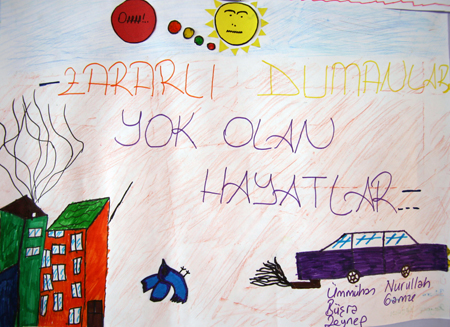 Ohh!
-ZARARLI DUMANLAR
YOK OLAN
HAYATLAR-
Ümmühan Nurullah
Büşra Gamze
Zeynep